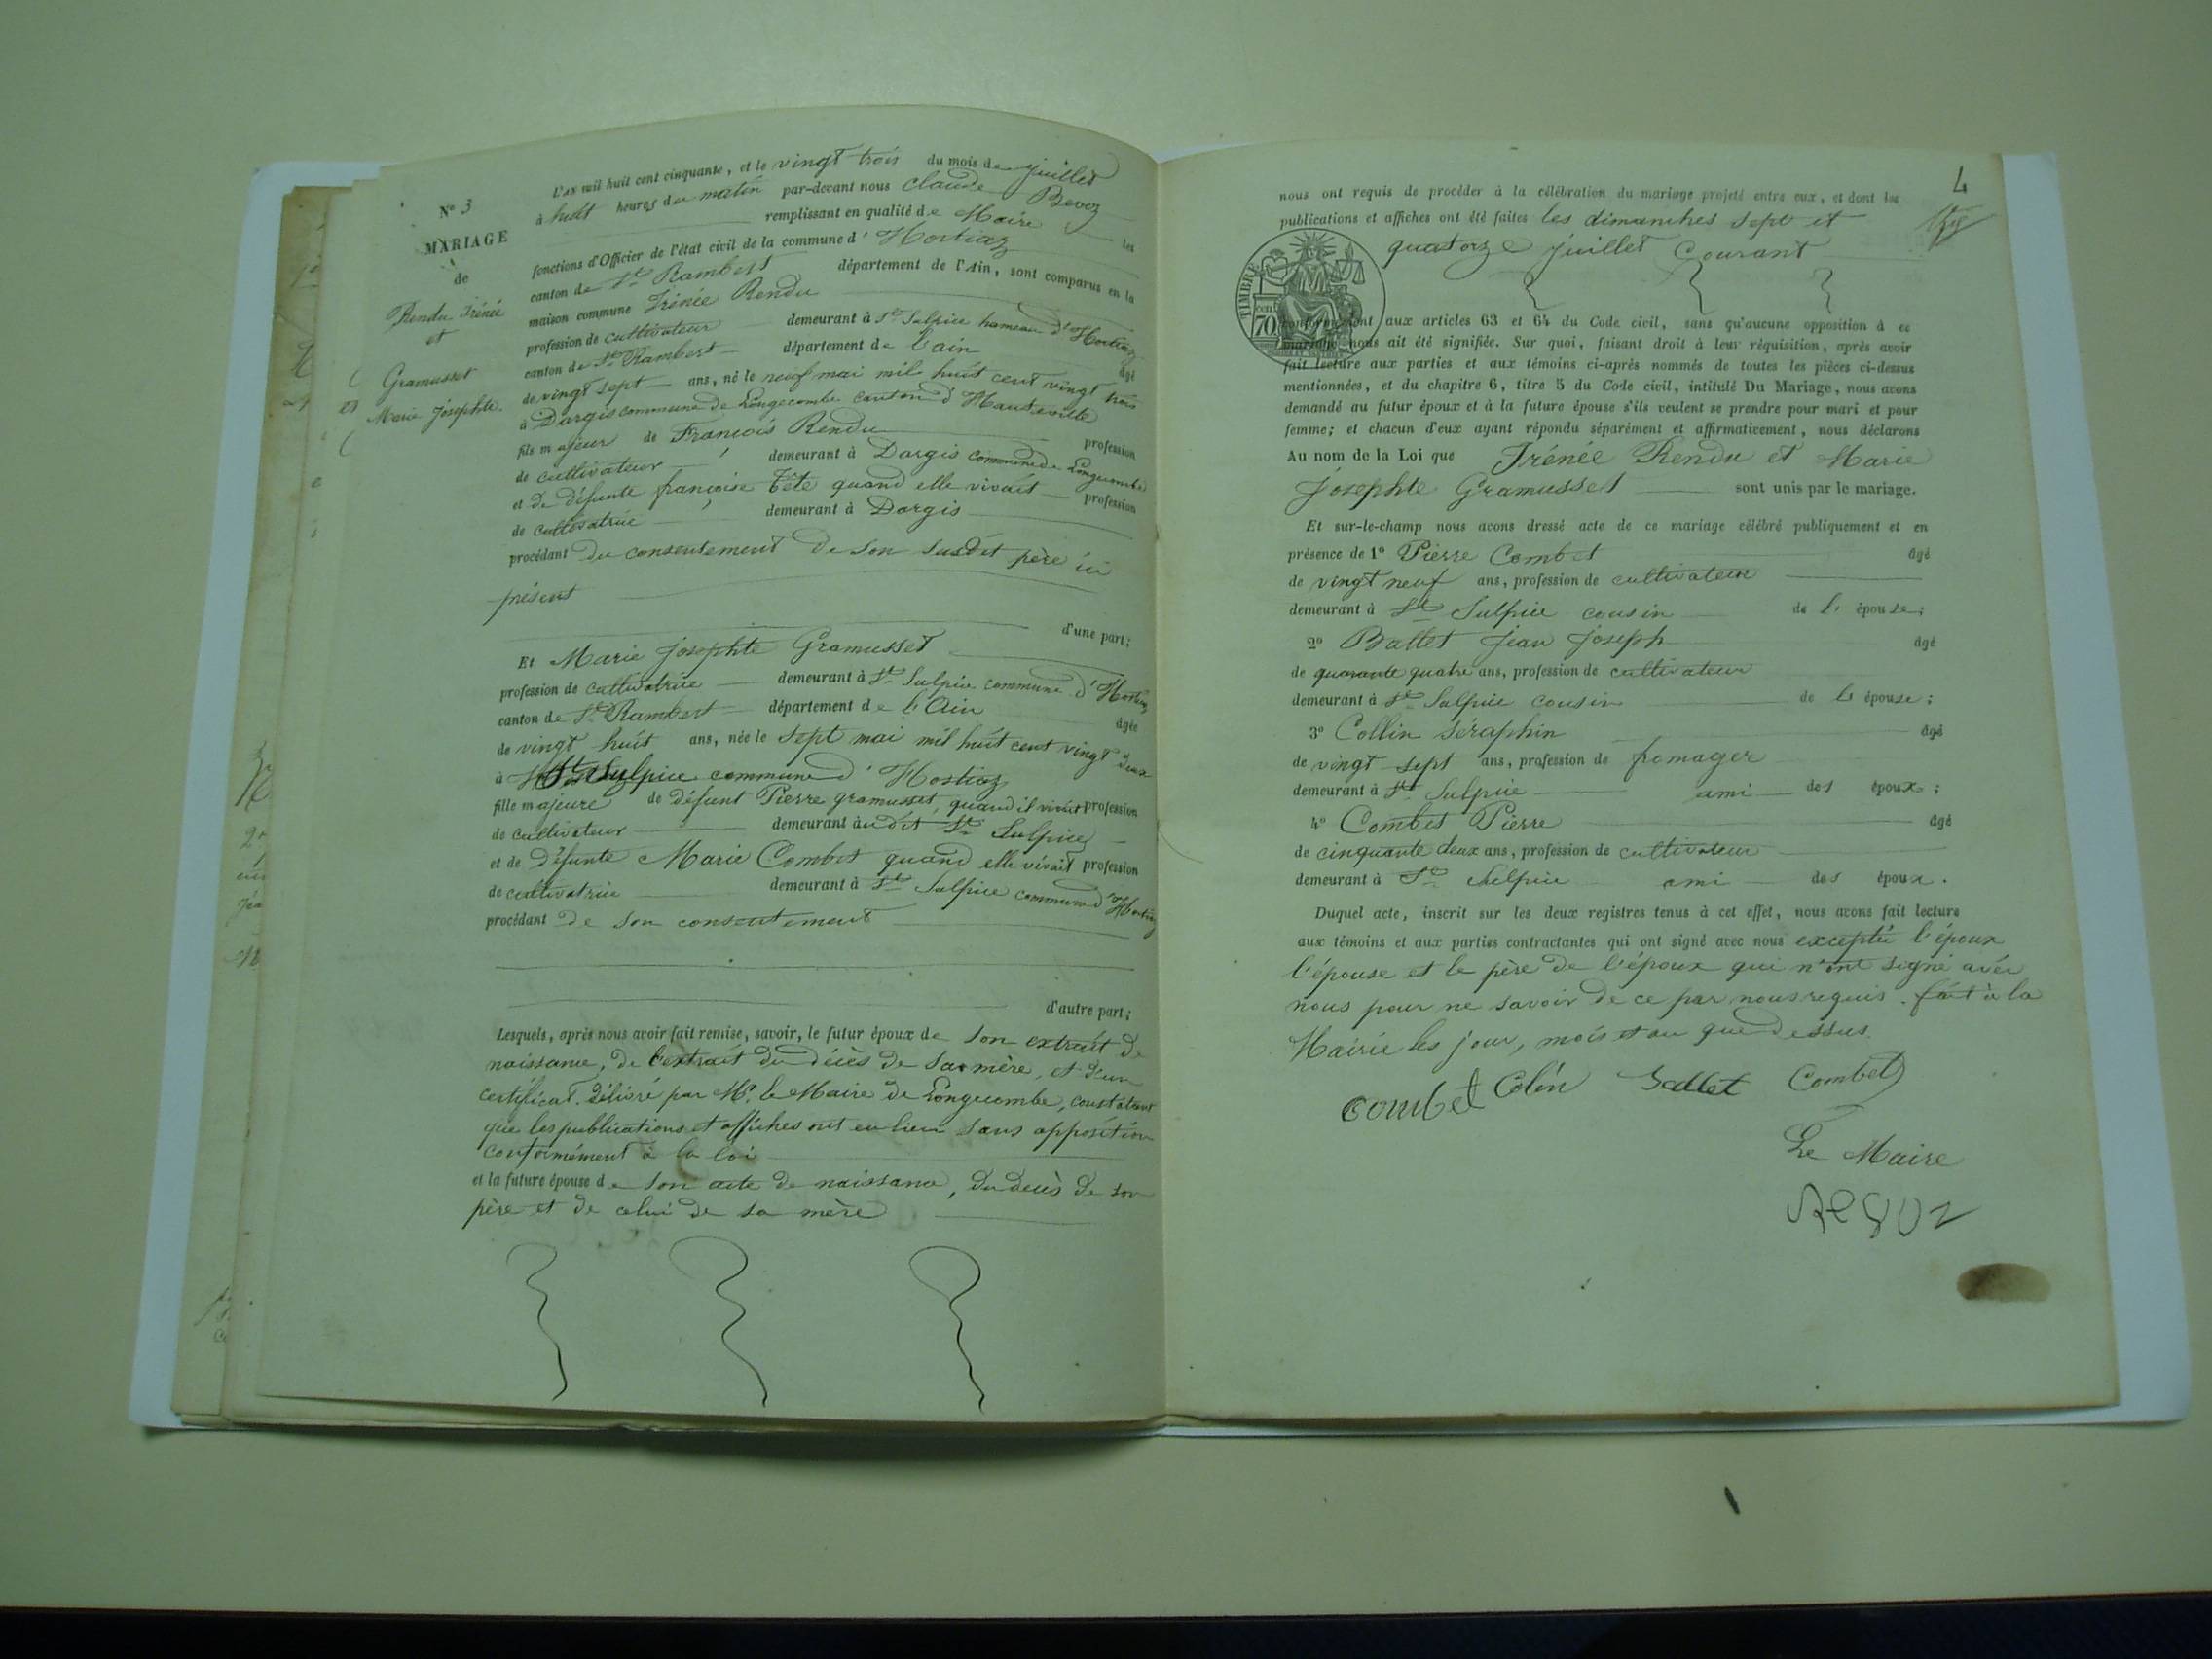 N° 3
MARIAGE
de
Rendu Irénée
et
Gramusset
Marie Josephte.
L'an mil huit cent cinquante, et le vingt trois du mois de juillet
à huit heures du matin par-devant nous Claude Bevoz
remplissant en qualité de Maire les
fonctions d'Officier de l'état civil de la commune d'Hostiaz
canton de St Rambert département de l'Ain, sont comparus en la
maison commune Irénée Rendu
profession de cultivateur demeurant à St Sulpice hameau d'Hostiaz
canton de St Rambert département de l'ain âgé
de vingt sept ans, né le neuf mai mil huit cent vingt trois
à Dargis commune de Longecombe canton d'Hauteville
fils majeur de François Rendu profession
de cultivateur demeurant à Dargis commune de Longecombe
et de défunte françoise Tête quand elle vivait profession
de cultivatrice demeurant à Dargis
procédant du consentement de son susdit père ici
présent
d'une part;
Et Marie Josephte Gramusset
profession de cultivatrice demeurant à St Sulpice commune d'Hostiaz
canton de St Rambert département de l'Ain âgée
de vingt huit ans, née le sept mai mil huit cent vingt deux
à St Sulpice commune d'Hostiaz
fille majeure de défunt Pierre gramusset, quand il vivait profession
de cultivateur demeurant audit St Sulpice
et de défunte Marie Combet quand elle vivait profession
de cultivatrice demeurant à St Sulpice commune d'Hostiaz
procédant de son consentement
d'autre part;
Lesquels, après nous avoir fait remise, savoir, le futur époux de son extrait de
naissance, de l'extrait du décès de sa mère, et d'un
certificat délivré par Mr le Maire de Longecombe, constatant
que les publications et affiches ont eu lieu sans opposition
conformément à la loi
et la future épouse de son acte de naissance, du decès de son
père et de celui de sa mère
4
nous ont requis de procéder à la célébration du mariage projeté entre eux, et dont les
publications et affiches ont été faites les dimanches sept et
quatorze juillet Courant
TIMBRE
70
conformément aux articles 63 et 64 du Code civil, sans qu'aucune opposition à ce
mariage nous ait été signifiée. Sur quoi, faisant droit à leur réquisition, après avoir
fait lecture aux parties et aux témoins ci-après nommés de toutes les pièces ci-dessus
mentionnées, et du chapitre 6, titre 5 du Code civil, intitulé Du Mariage, nous avons
demandé au futur époux et à la future épouse s'ils veulent se prendre pour mari et pour
femme; et chacun d'eux ayant répondu séparément et affirmativement, nous déclarons
Au nom de la Loi que Irénée Rendu et Marie
Josephte Gramusset sont unis par le mariage.
Et sur-le-champ nous avons dressé acte de ce mariage célébré publiquement et en
présence de 1° Pierre Combet âgé
de vingt neuf ans, profession de cultivateur
demeurant à St Sulpice cousin de l'épouse;
2° Ballet Jean Joseph âgé
de quarante quatre ans, profession de cultivateur
demeurant à St Sulpice cousin de l'épouse;
3° Collin séraphin âgé
de vingt sept ans, profession de fromager
demeurant à St Sulpice ami des époux;
4° Combet Pierre âgé
de cinquante deux ans, profession de cultivateur
demeurant à St Sulpice ami des époux.
Duquel acte, inscrit sur les deux registres tenus à cet effet, nous avons fait lecture
aux témoins et aux parties contractantes qui ont signé avec nous excepté l'époux
l'épouse et le père de l'époux qui n'ont signé avec
nous pour ne savoir de ce par nous requis. fait à la
Mairie les jour, mois et an que dessus.
combet Colin Ballet Combet
Le Maire
Bevoz